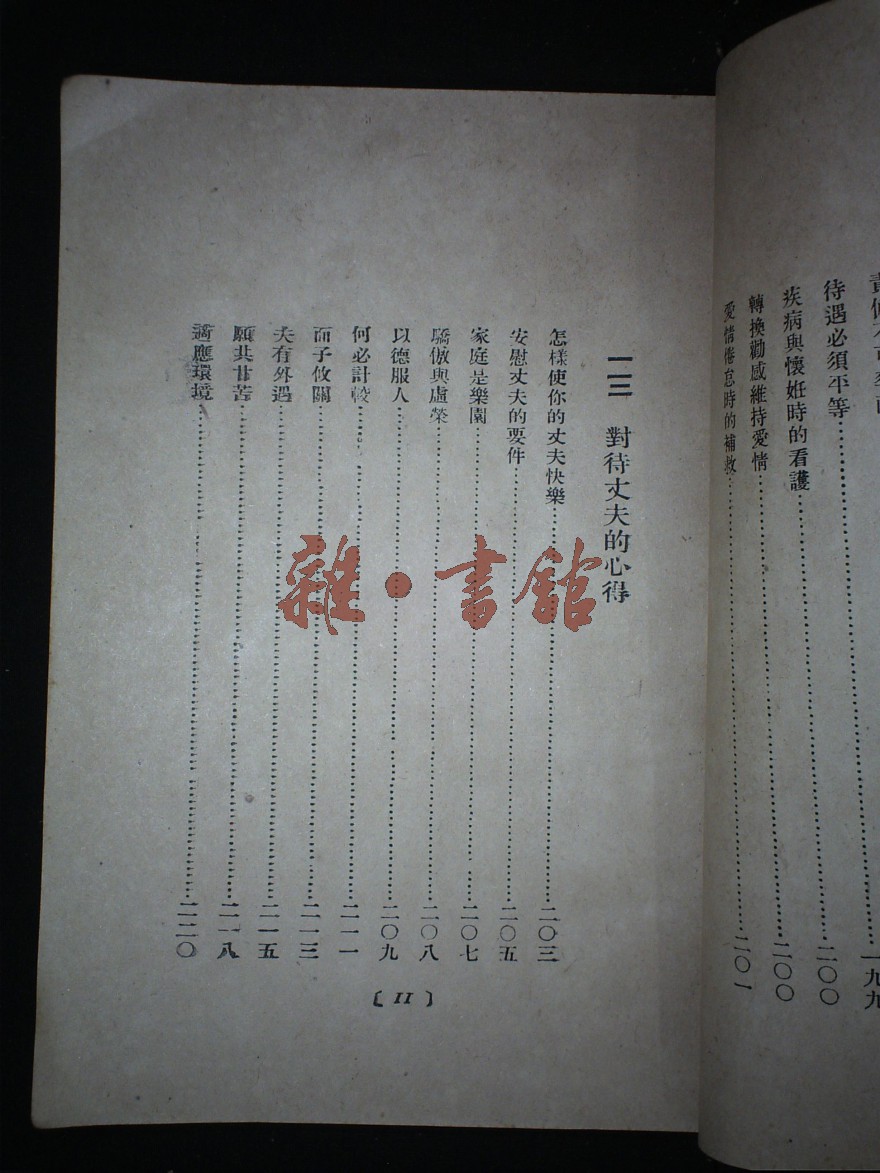 一九九
待遇必須平等……二〇〇
疾病與懷姙時的看護……二〇〇
轉換勸感維持愛情……
愛情倦怠時的補救……二〇一
一三 對待丈夫的心得
怎樣使你的丈夫快樂……二〇三
安慰丈夫的要件……二〇五
家庭是樂園……二〇七
驕傲與虛榮……二〇八
以德服人……二〇九
何必計較……二一一
面子攸關……二一三
夫有外遇……二一五
願共甘苦……二一八
適應環境……二二〇
〔 II 〕
雜・書館